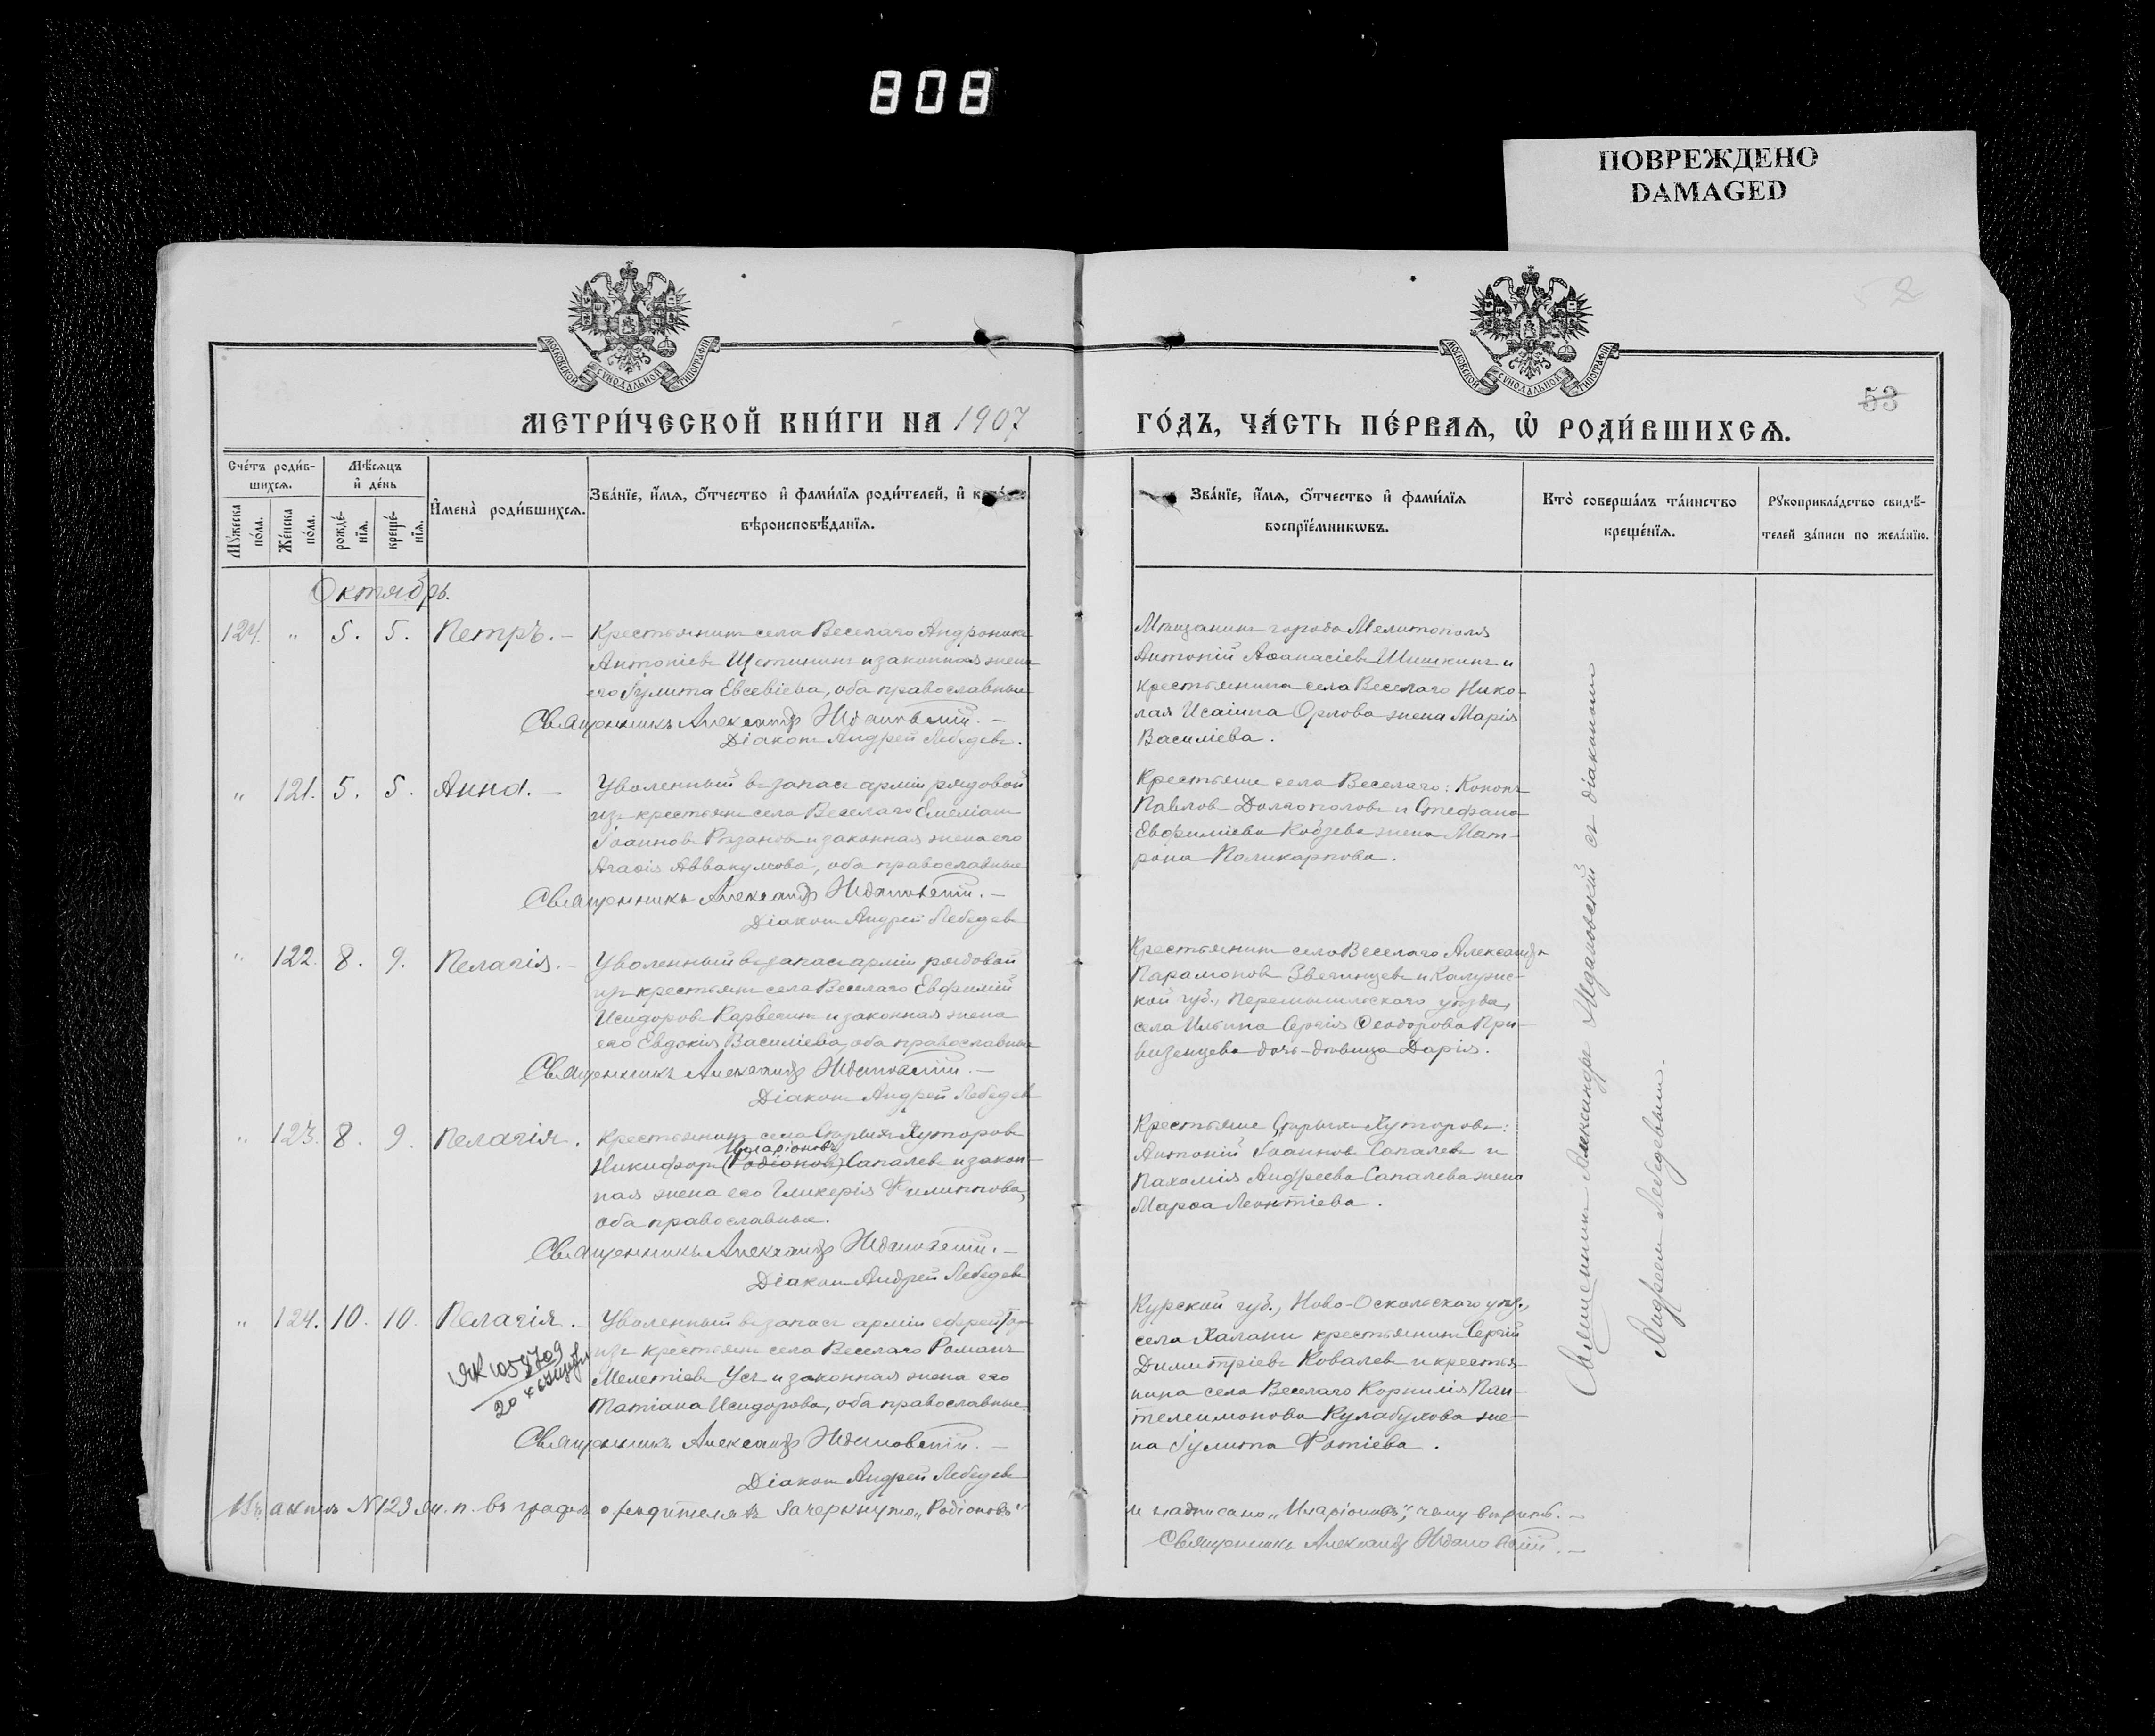 808
ПОВРЕЖДЕНО
DAMAGED
52
53
МОСКОВСКОЙ СѴНОДАЛЬНОЙ ТИПОГРАФІИ
МОСКОВСКОЙ СѴНОДАЛЬНОЙ ТИПОГРАФІИ
МЕТРИ́ЧЕСКОЙ КНИ́ГИ НА 1907
ГО́ДЪ, ЧА́СТЬ ПЕ́РВАѦ, Ѡ҆ РОДИ́ВШИХСѦ.
Сче́тъ роди́в-
шихсѧ.
Мѣ́сѧцъ
и҆ де́нь
Мꙋ́жеска
по́ла.
Же́нска
по́ла.
рожде́-
нїѧ.
креще́-
нїѧ.
И҆мена̀ роди́вшихсѧ.
Зва́нїе, и҆́мѧ, ѻ҆́тчество и҆ фами́лїѧ роди́телей, и҆
вѣроисповѣ́данїѧ.
Зва́нїе, и҆́мѧ, ѻ҆́тчество и҆ фами́лїѧ
воспрїе́мникѡвъ.
Кто̀ соверша́лъ та́инство
креще́нїѧ.
Рꙋкоприкла́дство свидѣ́-
телей за́писи по жела́нїю.
Октябрь.
124. " 5. 5. Петръ. –
Крестьянинъ села Веселаго Андроникъ
Антоніевъ Щетининъ и законная жена
его Іулита Евсевіева, оба православные
Священникъ Александръ Ждановскій. –
Діаконъ Андрей Лебедевъ.
Мѣщанинъ города Мелитополя
Антоній Аѳанасіевъ Шишкинъ и
крестьянина села Веселаго Нико-
лая Исаіина Орлова жена Марія
Василіева.
" 121. 5. 5. Анна. –
Уволенный въ запасъ арміи рядовой
изъ крестьянъ села Веселаго Емеліанъ
Іоанновъ Рязановъ и законная жена его
Агаѳія Аввакумова, оба православные
Священникъ Александръ Ждановскій. –
Діаконъ Андрей Лебедевъ
Крестьяне села Веселаго: Кононъ
Павловъ Долгополовъ и Стефана
Евфиміева Кобзева жена Мат-
рона Поликарпова.
" 122. 8. 9. Пелагія. –
Уволенный въ запасъ арміи рядовой
изъ крестьянъ села Веселаго Евфимій
Исидоровъ и законная жена
его Евдокія Василіева, оба православные
Священникъ Александръ Ждановскій. –
Діаконъ Андрей Лебедевъ
Крестьянинъ села Веселаго Александръ
Парамоновъ Звегинцевъ и Калужс-
кой губ., Перемышльскаго уѣзда,
села Ильина Сергія Ѳеодорова При-
визенцева дочь-дѣвица Дарія.
" 123. 8. 9. Пелагія.
Крестьянинъ села Старыхъ Хуторовъ
Иларіоновъ
Никифоръ (Родіоновъ) Сапалевъ и закон-
ная жена его Гликерія Филиппова,
оба православные.
Священникъ Александръ Ждановскій. –
Діаконъ Андрей Лебедевъ
Крестьяне Старыхъ Хуторовъ:
Антоній Іоанновъ Сапалевъ и
Пахомія Андреева Сапалева жена
Марѳа Леонтіева.
" 124. 10. 10. Пелагія. –
Уволенный въ запасъ арміи ефрейтор
изъ крестьянъ села Веселаго Романъ
Мелетіевъ Усъ и законная жена его
Татіана Исидорова, оба православные.
Священникъ Александръ Ждановскій. –
Діаконъ Андрей Лебедевъ
Курской губ., Ново-Оскольскаго уѣз.,
села Халани крестьянинъ Сергій
Димитріевъ Ковалевъ и крестья-
нина села Веселаго Корнилія Пан-
телеимонова Кулабухова же-
на Іулита Фотіева.
Священникъ Александръ Ждановскій съ діакономъ
Андреемъ Лебедевымъ.
Въ актѣ N123 ж. п. въ графѣ о родителяхъ зачеркнуто „Родіоновъ"
и надписано „Иларіоновъ", чему вѣрить. –
Священникъ Александръ Ждановскій. –